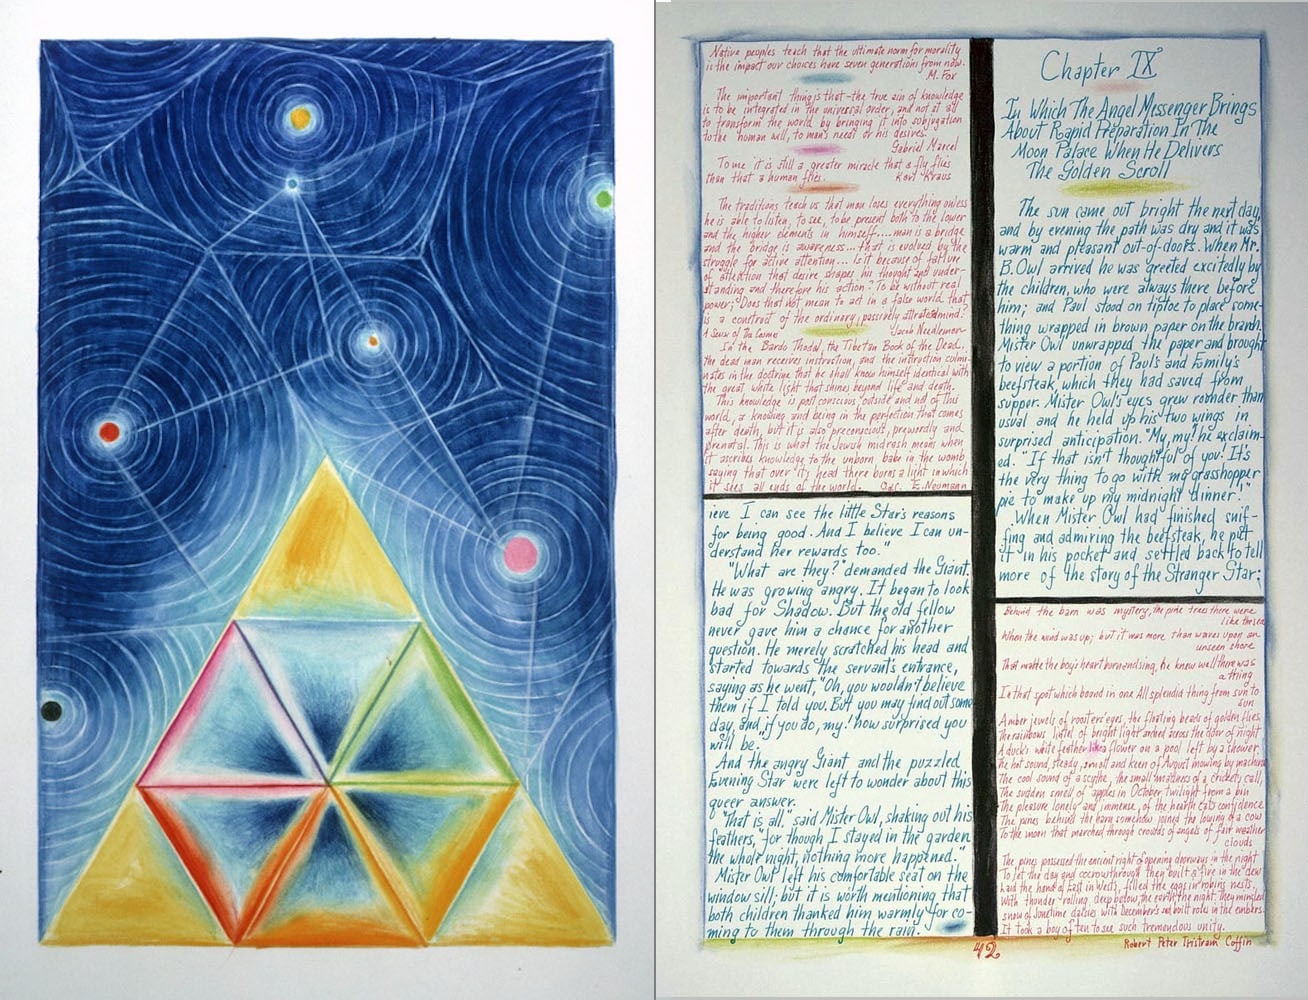 Native peoples teach that the ultimate norm for morality
is the impact our choices have seven generations from now.
M. Fox
The important thing is that the true aim of knowledge
is to be integrated in the universal order, and not at all
to transform the world by bringing it into subjugation
to the human will, to man's needs or his desires.
Gabriel Marcel
To me it is still a greater miracle that a fly flies
than that a human flies. Karl Kraus
The traditions teach us that man loses everything unless
he is able to listen, to see, to be present both to the lower
and the higher elements in himself.... man is a bridge
and the bridge is awareness... that is evolved by the
struggle for active attention... Is it because of failure
of attention that desire shapes his thought and under-
standing and therefore his action? To be without real
power; Does that not mean to act in a false world that
is a construct of the ordinary, passively attracted mind?
A Sense of the Cosmos Jacob Needleman
In the Bardo Thodol, the Tibetan Book of the Dead,
the dead man receives instruction, and the instruction culmi-
nates in the doctrine that he shall know himself identical with
the great white light that shines beyond life and death.
This knowledge is post conscious, outside and not of this
world, a knowing and being in the perfection that comes
after death, but it is also preconscious, preworldly and
prenatal. This is what the Jewish midrash means when
it ascribes knowledge to the unborn babe in the womb
saying that over its head there burns a light in which
it sees all ends of the world. E. Neumann
ieve I can see the little Star's reasons
for being good. And I believe I can un-
derstand her rewards too."
"What are they?" demanded the Giant.
He was growing angry. It began to look
bad for Shadow. But the old fellow
never gave him a chance for another
question. He merely scratched his head and
started towards the servant's entrance,
saying as he went, "Oh, you wouldn't believe
them if I told you. But you may find out some
day, and if you do, my! how surprised you
will be."
And the angry Giant and the puzzled
Evening Star were left to wonder about this
queer answer.
"That is all," said Mister Owl, shaking out his
feathers, "for though I stayed in the garden
the whole night, nothing more happened."
Mister Owl left his comfortable seat on the
window sill; but it is worth mentioning that
both children thanked him warmly for co-
ming to them through the rain.
Chapter IX
In Which The Angel Messenger Brings
About Rapid Preparation In The
Moon Palace When He Delivers
The Golden Scroll
The sun came out bright the next day,
and by evening the path was dry and it was
warm and pleasant out-of-doors. When Mr.
B. Owl arrived he was greeted excitedly by
the children, who were always there before
him; and Paul stood on tiptoe to place some-
thing wrapped in brown paper on the branch.
Mister Owl unwrapped the paper and brought
to view a portion of Paul's and Emily's
beefsteak, which they had saved from
supper. Mister Owl's eyes grew rounder than
usual and he held up his two wings in
surprised anticipation. "My, my!" he exclaim-
ed. "If that isn't thoughtful of you! It's
the very thing to go with my grasshopper
pie to make up my midnight dinner!"
When Mister Owl had finished snif-
fing and admiring the beefsteak, he put
it in his pocket and settled back to tell
more of the story of the Stranger Star:
Behind the barn was mystery, the pine trees there were
like the sea
When the wind was up; but it was more than waves upon an
unseen shore
That made the boy's heart burn and sing, he knew well there was
a thing
In that spot which bound in one All splendid thing from sun to
sun
Amber jewels of roosters' eyes, the floating beads of golden flies
The rainbows lintel of bright light arched across the door of night
A duck's white feather like a flower on a pool left by a shower
The hot sound, steady, small and keen of August mowing by machine
The cool sound of a scythe, the small neatness of a crickets call,
The sudden smell of apples in October twilight from a bin
The pleasure lonely and immense, of the hearth cats confidence
The pines behind the barn somehow joined the lowing of a cow
To the moon that marched through crowds of angels of fair weather
clouds
The pines possessed the ancient right of opening doorways in the night
To let the day and cocrow through they built a fire in the dew
Laid the hand of East in West's, filled the eggs in robins nests
With thunder rolling deep below the earth, the night. They mingled
snow of Junetime daisies with December's and built roles in the embers.
It took a boy of ten to see such tremendous unity.
Robert Peter Tristram Coffin
42